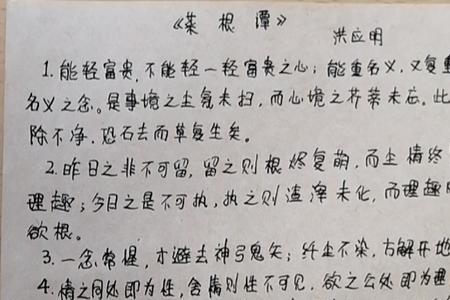 《菜根谭》
洪应明
1. 能轻富贵,不能轻一轻富贵之心;能重名义,又复重
名义之念。是事境之尘氛未扫,而心境之芥蒂未忘。此
除不净,恐石去而草复生矣。
2. 昨日之非不可留,留之则根烬复萌,而尘情终
理趣;今日之是不可执,执之则渣滓未化,而理趣
欲根。
3. 一念常惺,才避去神弓鬼矢;纤尘不染,方解开地
4. 情之同处即为性,舍情则性不可见,欲之公处即为理